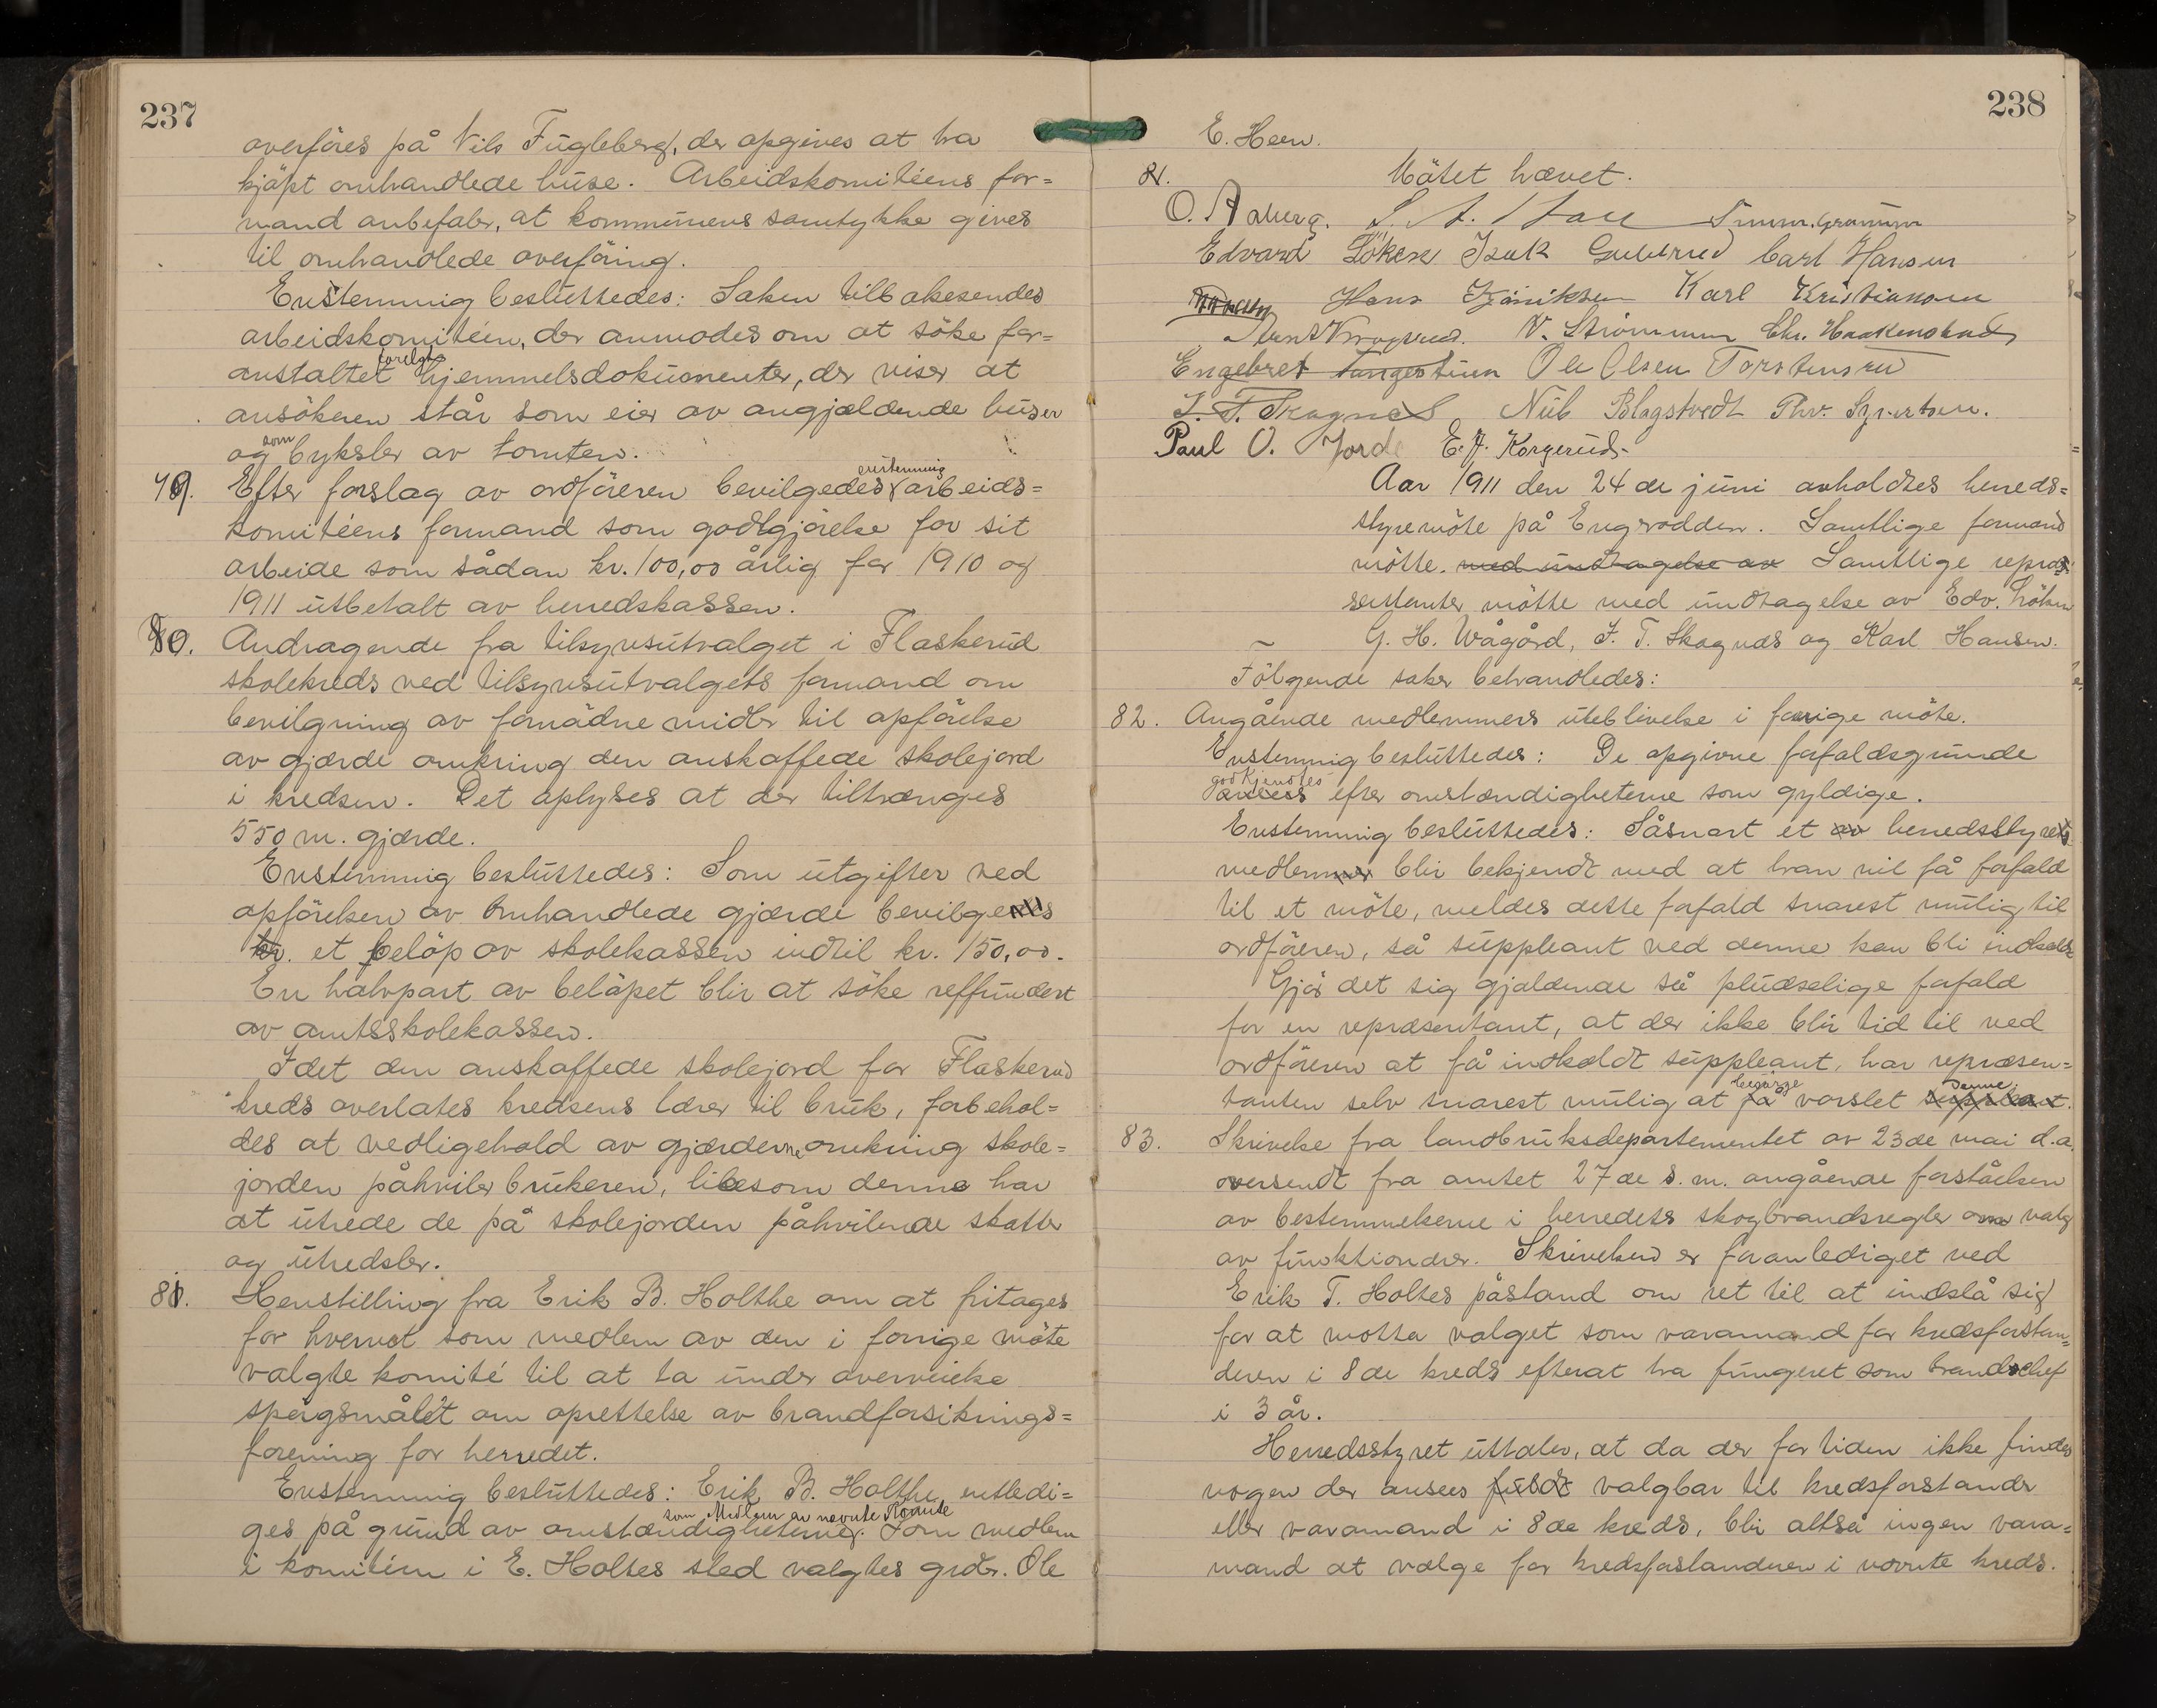 237
overføres på Nils Fugleberg, der opgives at ha
kjøpt omhandlede huse. Arbeidskomitéens for=
mand anbefaler, at kommunens samtykke gives
til omhandlede overføring.
Enstemmig besluttedes: Saken tilbakesendes
arbeidskomitéen, der anmodes om at söke for=
anstaltet forelagt hjemmelsdokumenter, der viser at
ansökeren står som eier av angjældende huser
og som byksler av tomten.
79. Efter forslag av ordföreren bevilgedes enstemmig arbeids=
komitéens formand som godtgjörelse for sit
arbeide som sådan kr. 100,00 årlig for 1910 og
1911 utbetalt av herredskassen.
80. Andragende fra tilsynsutvalget i Flaskerud
skolekreds ved tilsynsutvalgets formand om
bevilgning av fornödne midler til opförelse
av gjærde omkring den anskaffede skolejord
i kredsen. Det oplyses at der tiltrænges
550 m. gjærde.
Enstemmig besluttedes: Som utgifter ved
opförelsen av omhandlede gjærde bevilges
kr. et belöp av skolekassen indtil kr. 150,00.
En halvpart av belöpet blir at söke reffundert
av amtsskolekassen.
Idet den anskaffede skolejord for Flaskerud
kreds overlates kredsens lærer til bruk, forbehol=
des at vedligehold av gjærderne omkring skole=
jorden påhviler brukeren, likesom denne har
at utrede de på skolejorden påhvilende skatter
og utredsler.
81. Henstilling fra Erik B. Holthe om at fritages
for hvervet som medlem av den i forrige möte
valgte komité til at ta under overveielse
spörgsmålet om oprettelse av brandforsikrings=
forening for herredet.
Enstemmig besluttedes: Erik B. Holthe entledi=
ges på grund av omstændigheterne som Medlem av nævnte Komite. Som medlem
i komitéen i E. Holtes sted valgtes grdr. Ole
238
E. Heen.
81. Mötet hævet.
O. Aaberg.
Edvard Löken Isak Gulbrud Carl Hansen
Hans Karl Kristiansen
N. Strömmen Chr. Haakenstad
Engebret Tangestuen Ole Olsen Torstensrud
J. T. Skagnæs Nils Blagstvedt Thv. Syvertsen.
Paul O. Jorde E. A. Korgerud.
Aar 1911 den 24de juni avholdtes herreds=
styremöte på Engerodden. Samtlige formænd
mötte. med undtagelse av Samtlige repræ=
sentanter mötte med undtagelse av Edv. Löken
G. H. Wågård, J. T. Skagnæs og Karl Hansen.
Fölgende saker behandledes:
82. Angående medlemmers uteblivelse i forrige möte.
Enstemmig besluttedes: De opgivne forfaldsgrunde
godkjendtes ansees efter omstændigheterne som gyldige.
Enstemmig besluttedes: Såsnart et av herredsstyrets
medlemmer blir bekjendt med at han vil få forfald
til et möte, meldes dette forfald snarest mulig til
ordföreren, så suppleant ved denne kan bli indkaldt
Gjör det sig gjældende så pludselige forfald
for en repræsentant, at der ikke blir tid til ved
ordföreren at få indkaldt suppleant, har repræsen=
tanten selv snarest mulig at få besörge varslet suppleant denne.
83. Skrivelse fra landbruksdepartementet av 23de mai d.a.
oversendt fra amtet 27de s. m. angående forståelsen
av bestemmelserne i herredets skogbrandsregler om valg
av funktionærer. Skrivelsen er foranlediget ved
Erik T. Holtes påstand om ret til at undslå sig
for at motta valget som varamand for kredsforstan=
deren i 8de kreds efterat ha fungeret som brandschef
i 3 år.
Herredsstyret uttaler, at da der for tiden ikke findes
nogen der ansees fuldt valgbar til kredsforstander
eller varamand i 8de kreds, blir altså ingen vara=
mand at vælge for kredsforstanderen i nævnte kreds.